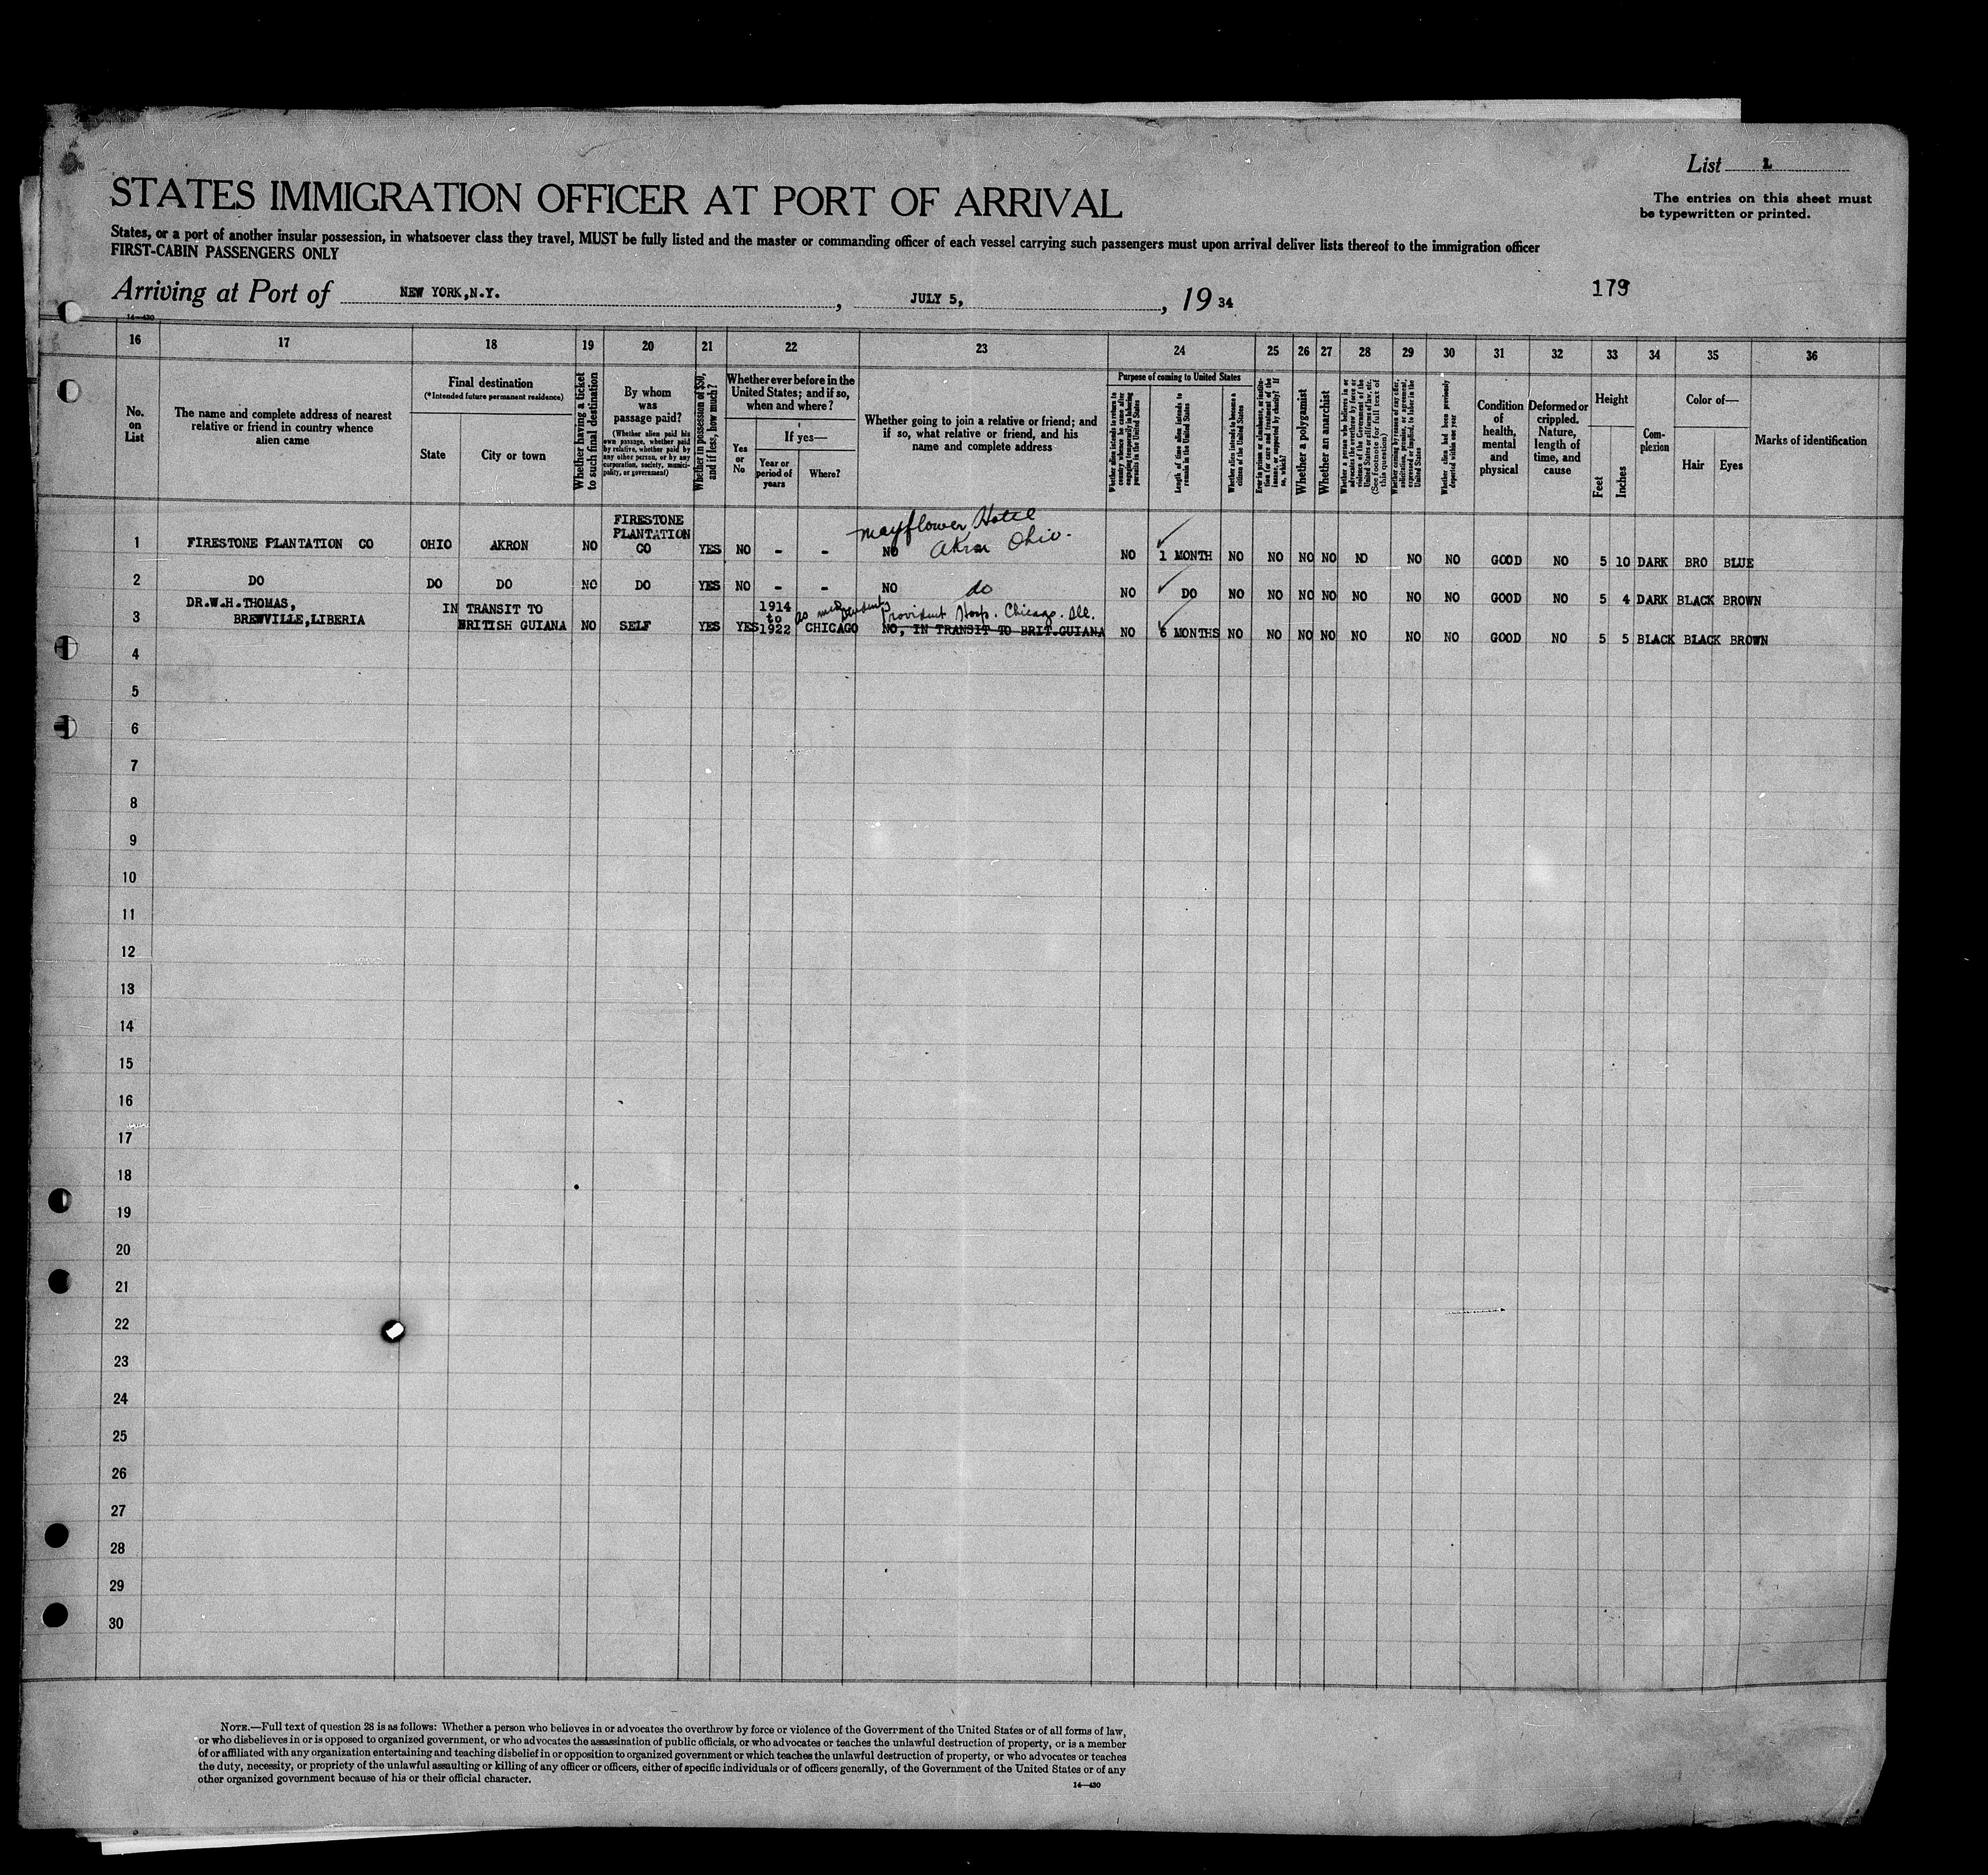 List 1
STATES IMMIGRATION OFFICER AT PORT OF ARRIVAL
The entries on this sheet must
be typewritten or printed.
States, or a port of another insular possession, in whatsoever class they travel, MUST be fully listed and the master or commanding officer of each vessel carrying such passengers must upon arrival deliver lists thereof to the immigration officer
FIRST-CABIN PASSENGERS ONLY
Arriving at Port of NEW YORK,N.Y. , JULY 5, , 19 34
179
14—430
16 17 18 19 20 21 22 23 24 25 26 27 28 29 30 31 32 33 34 35 36
No.
on
List
The name and complete address of nearest
relative or friend in country whence
alien came
Final destination
(*Intended future permanent residence)
State
City or town
Whether having a ticket
to such final destination
By whom
was
passage paid?
(Whether alien paid his
own passage, whether paid
by relative, whether paid by
any other person, or by any
corporation, society, munici-
pality, or government)
Whether in possession of $50,
and if less, how much?
Whether ever before in the
United States; and if so,
when and where?
Yes
or
No
If yes—
Year or
period of
years
Where?
Whether going to join a relative or friend; and
if so, what relative or friend, and his
name and complete address
Purpose of coming to United States
Whether alien intends to return to
country whence he came after
engaging temporarily in laboring
pursuits in the United States
Length of time alien intends to
remain in the United States
Whether alien intends to become a
citizen of the United States
Ever in prison or almshouse, or institu-
tion for care and treatment of the
insane, or supported by charity? If
so, which?
Whether a polygamist
Whether an anarchist
Whether a person who believes in or
advocates the overthrow by force or
violence of the Government of the
United States or all forms of law, etc.
(See footnote for full text of
this question)
Whether coming by reason of any offer,
solicitation, promise, or agreement,
expressed or implied, to labor in the
United States
Whether alien had been previously
deported within one year
Condition
of
health,
mental
and
physical
Deformed or
crippled.
Nature,
length of
time, and
cause
Height
Feet
Inches
Com-
plexion
Color of—
Hair
Eyes
Marks of identification
mayflower Hotel
Akron Ohio.
FIRESTONE
PLANTATION
1 FIRESTONE PLANTATION CO OHIO AKRON NO CO YES NO - - NO NO 1 MONTH NO NO NO NO NO NO NO GOOD NO 5 10 DARK BRO BLUE
2 DO DO DO NO DO YES NO - - NO do NO DO NO NO NO NO NO NO NO GOOD NO 5 4 DARK BLACK BROWN
DR.W.H.THOMAS, IN TRANSIT TO 1914 as med students Provident Hosp. Chicago. Ill.
to
3 BREWVILLE,LIBERIA BRITISH GUIANA NO SELF YES YES 1922 CHICAGO NO, IN TRANSIT TO BRIT.GUIANA NO 6 MONTHS NO NO NO NO NO NO NO GOOD NO 5 5 BLACK BLACK BROWN
4
5
6
7
8
9
10
11
12
13
14
15
16
17
18
19
20
21
22
23
24
25
26
27
28
29
30
NOTE.—Full text of question 28 is as follows: Whether a person who believes in or advocates the overthrow by force or violence of the Government of the United States or of all forms of law,
or who disbelieves in or is opposed to organized government, or who advocates the assassination of public officials, or who advocates or teaches the unlawful destruction of property, or is a member
of or affiliated with any organization entertaining and teaching disbelief in or opposition to organized government or which teaches the unlawful destruction of property, or who advocates or teaches
the duty, necessity, or propriety of the unlawful assaulting or killing of any officer or officers, either of specific individuals or of officers generally, of the Government of the United States or of any
other organized government because of his or their official character.
14—430